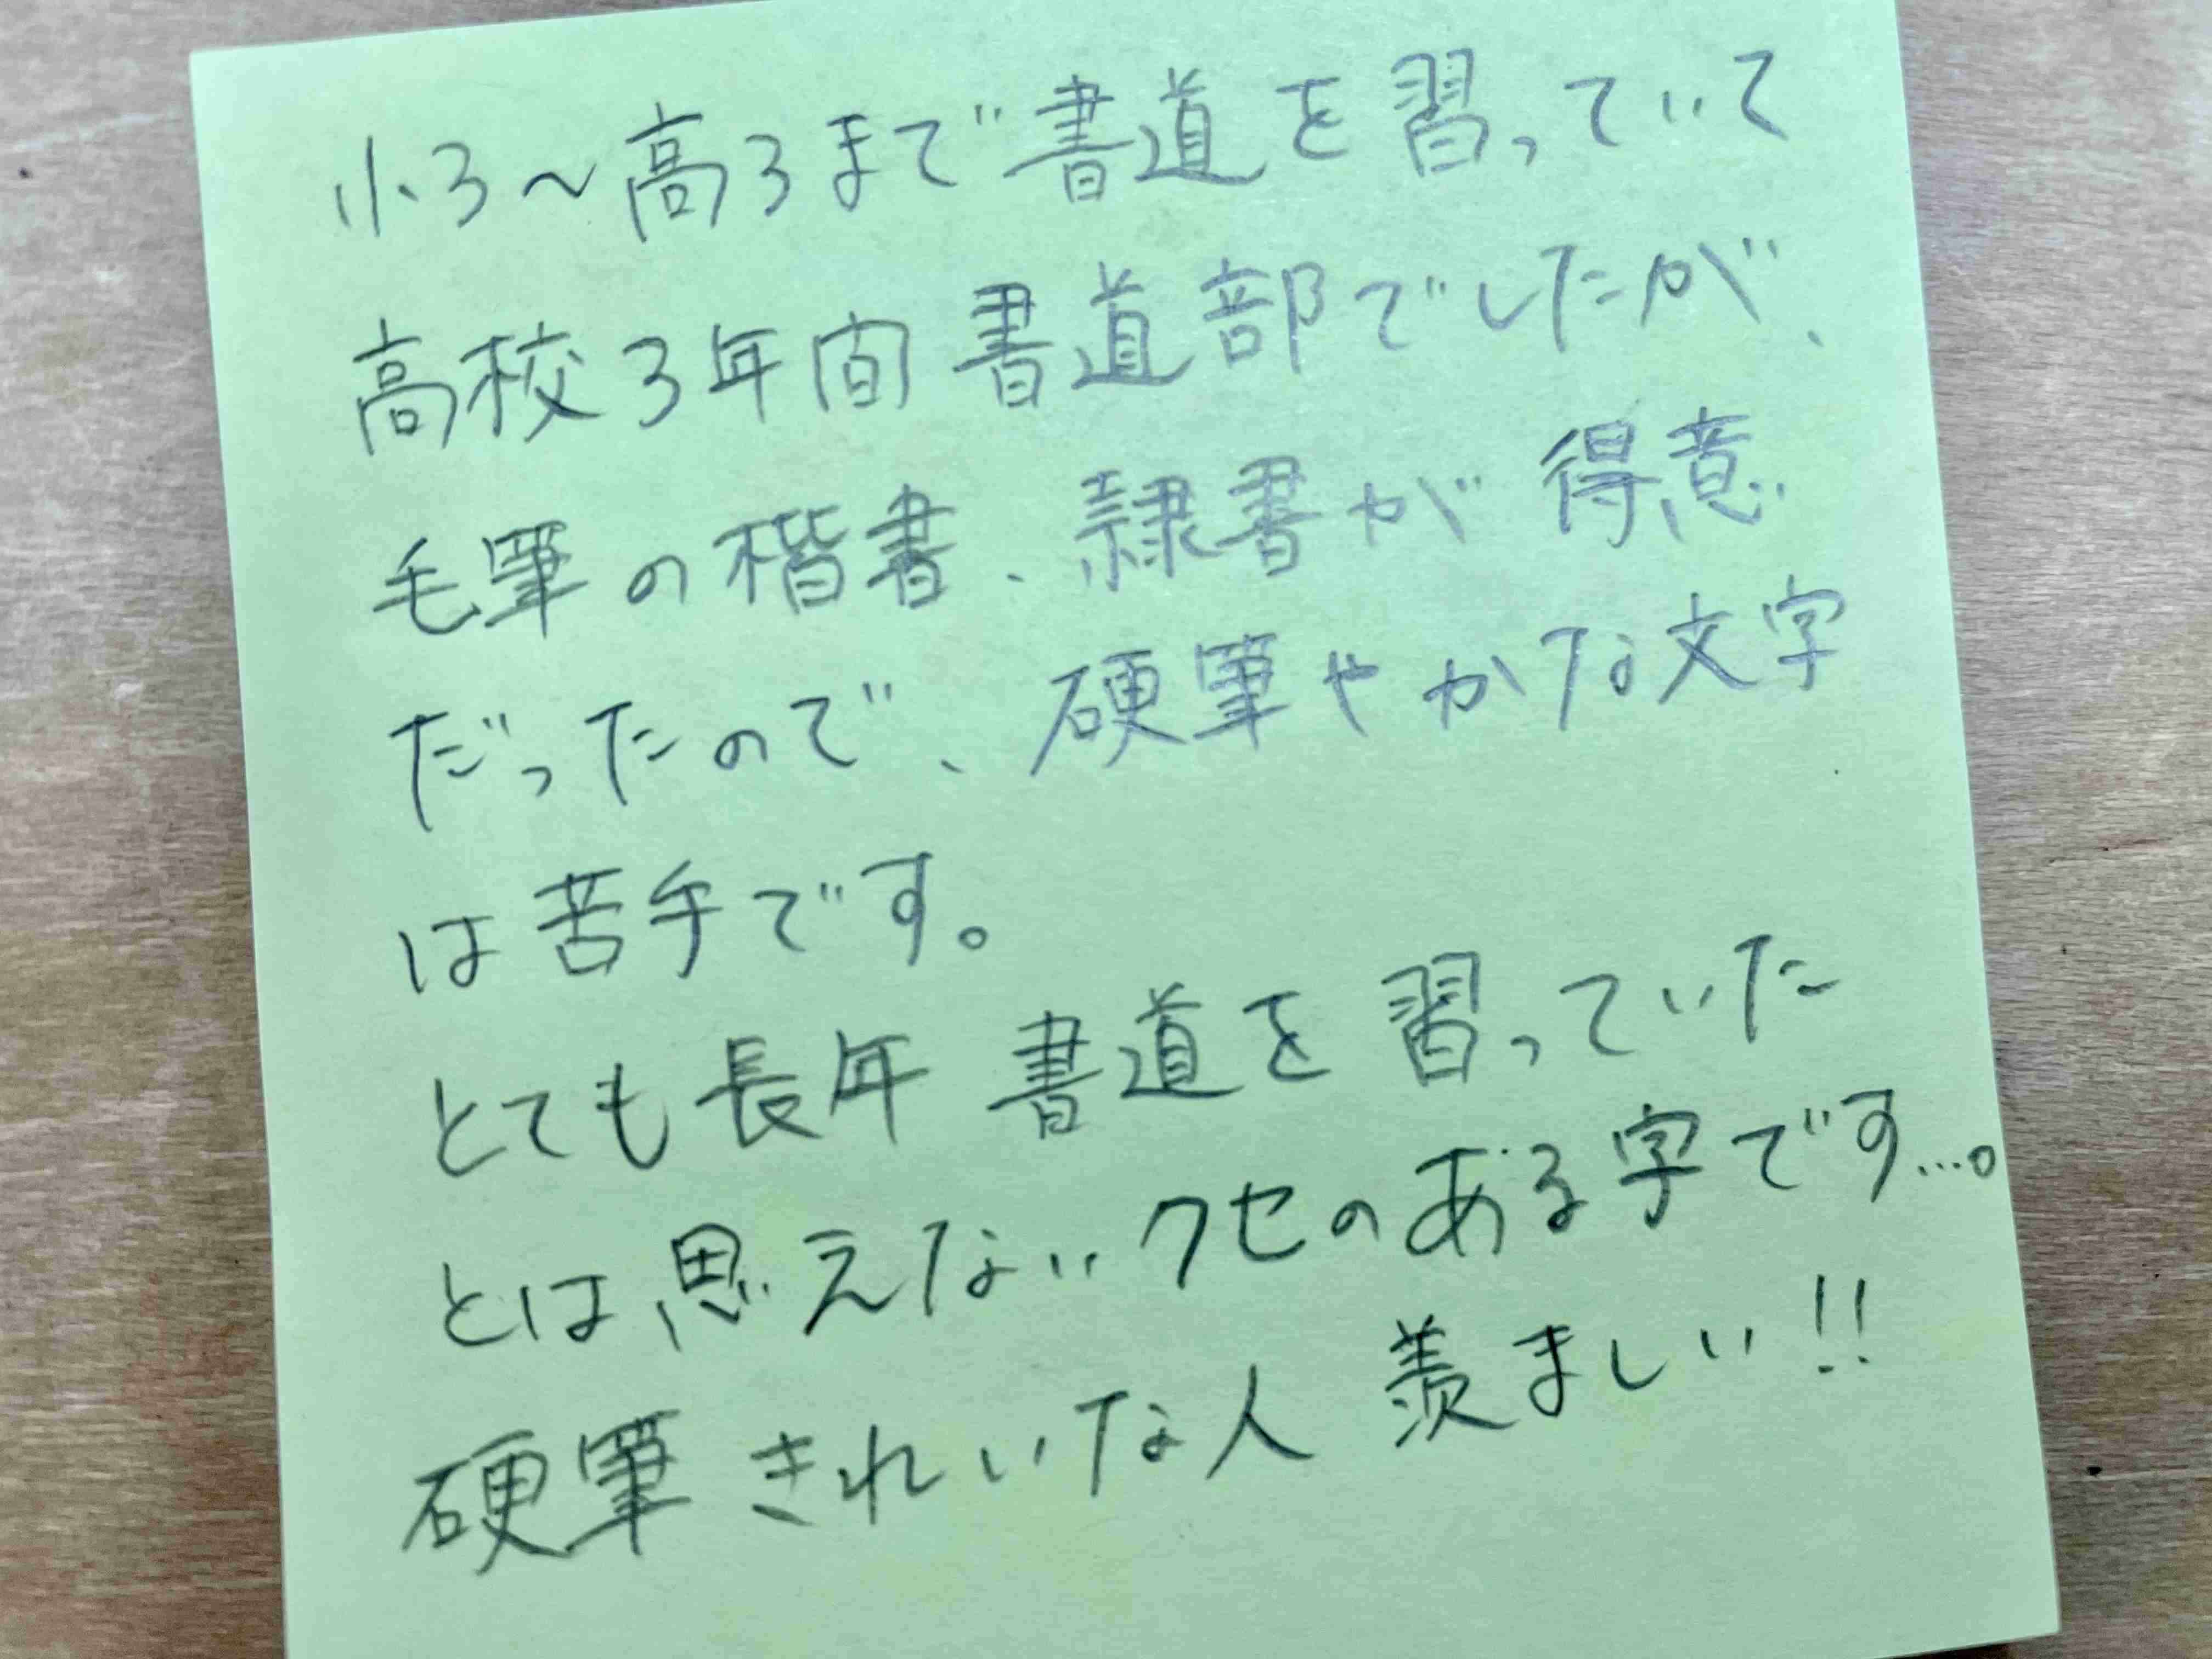 小3〜高3まで書道を習っていて
高校3年間書道部でしたが、
毛筆の楷書、隷書が得意
だったので、硬筆やかな文字
は苦手です。
とても長年書道を習っていた
とは思えないクセのある字です…。
硬筆きれいな人羨ましい!!